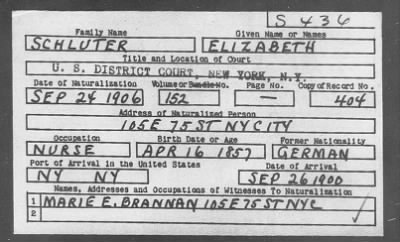 S 436
Family Name Given Name or Names
SCHLUTER ELIZABETH
Title and Location of Court
U. S. DISTRICT COURT, NEW YORK, N.Y.
Date of Naturalization Volume or Bundle No. Page No. Copy of Record No.
SEP 24 1906 152 — 404
Address of Naturalized Person
105 E 75 ST NY CITY
Occupation Birth Date or Age Former Nationality
NURSE APR 16 1857 GERMAN
Port of Arrival in the United States Date of Arrival
NY NY SEP 26 1900
Names, Addresses and Occupations of Witnesses To Naturalization
1 MARIE E. BRANNAN 105 E 75 ST NYC
2